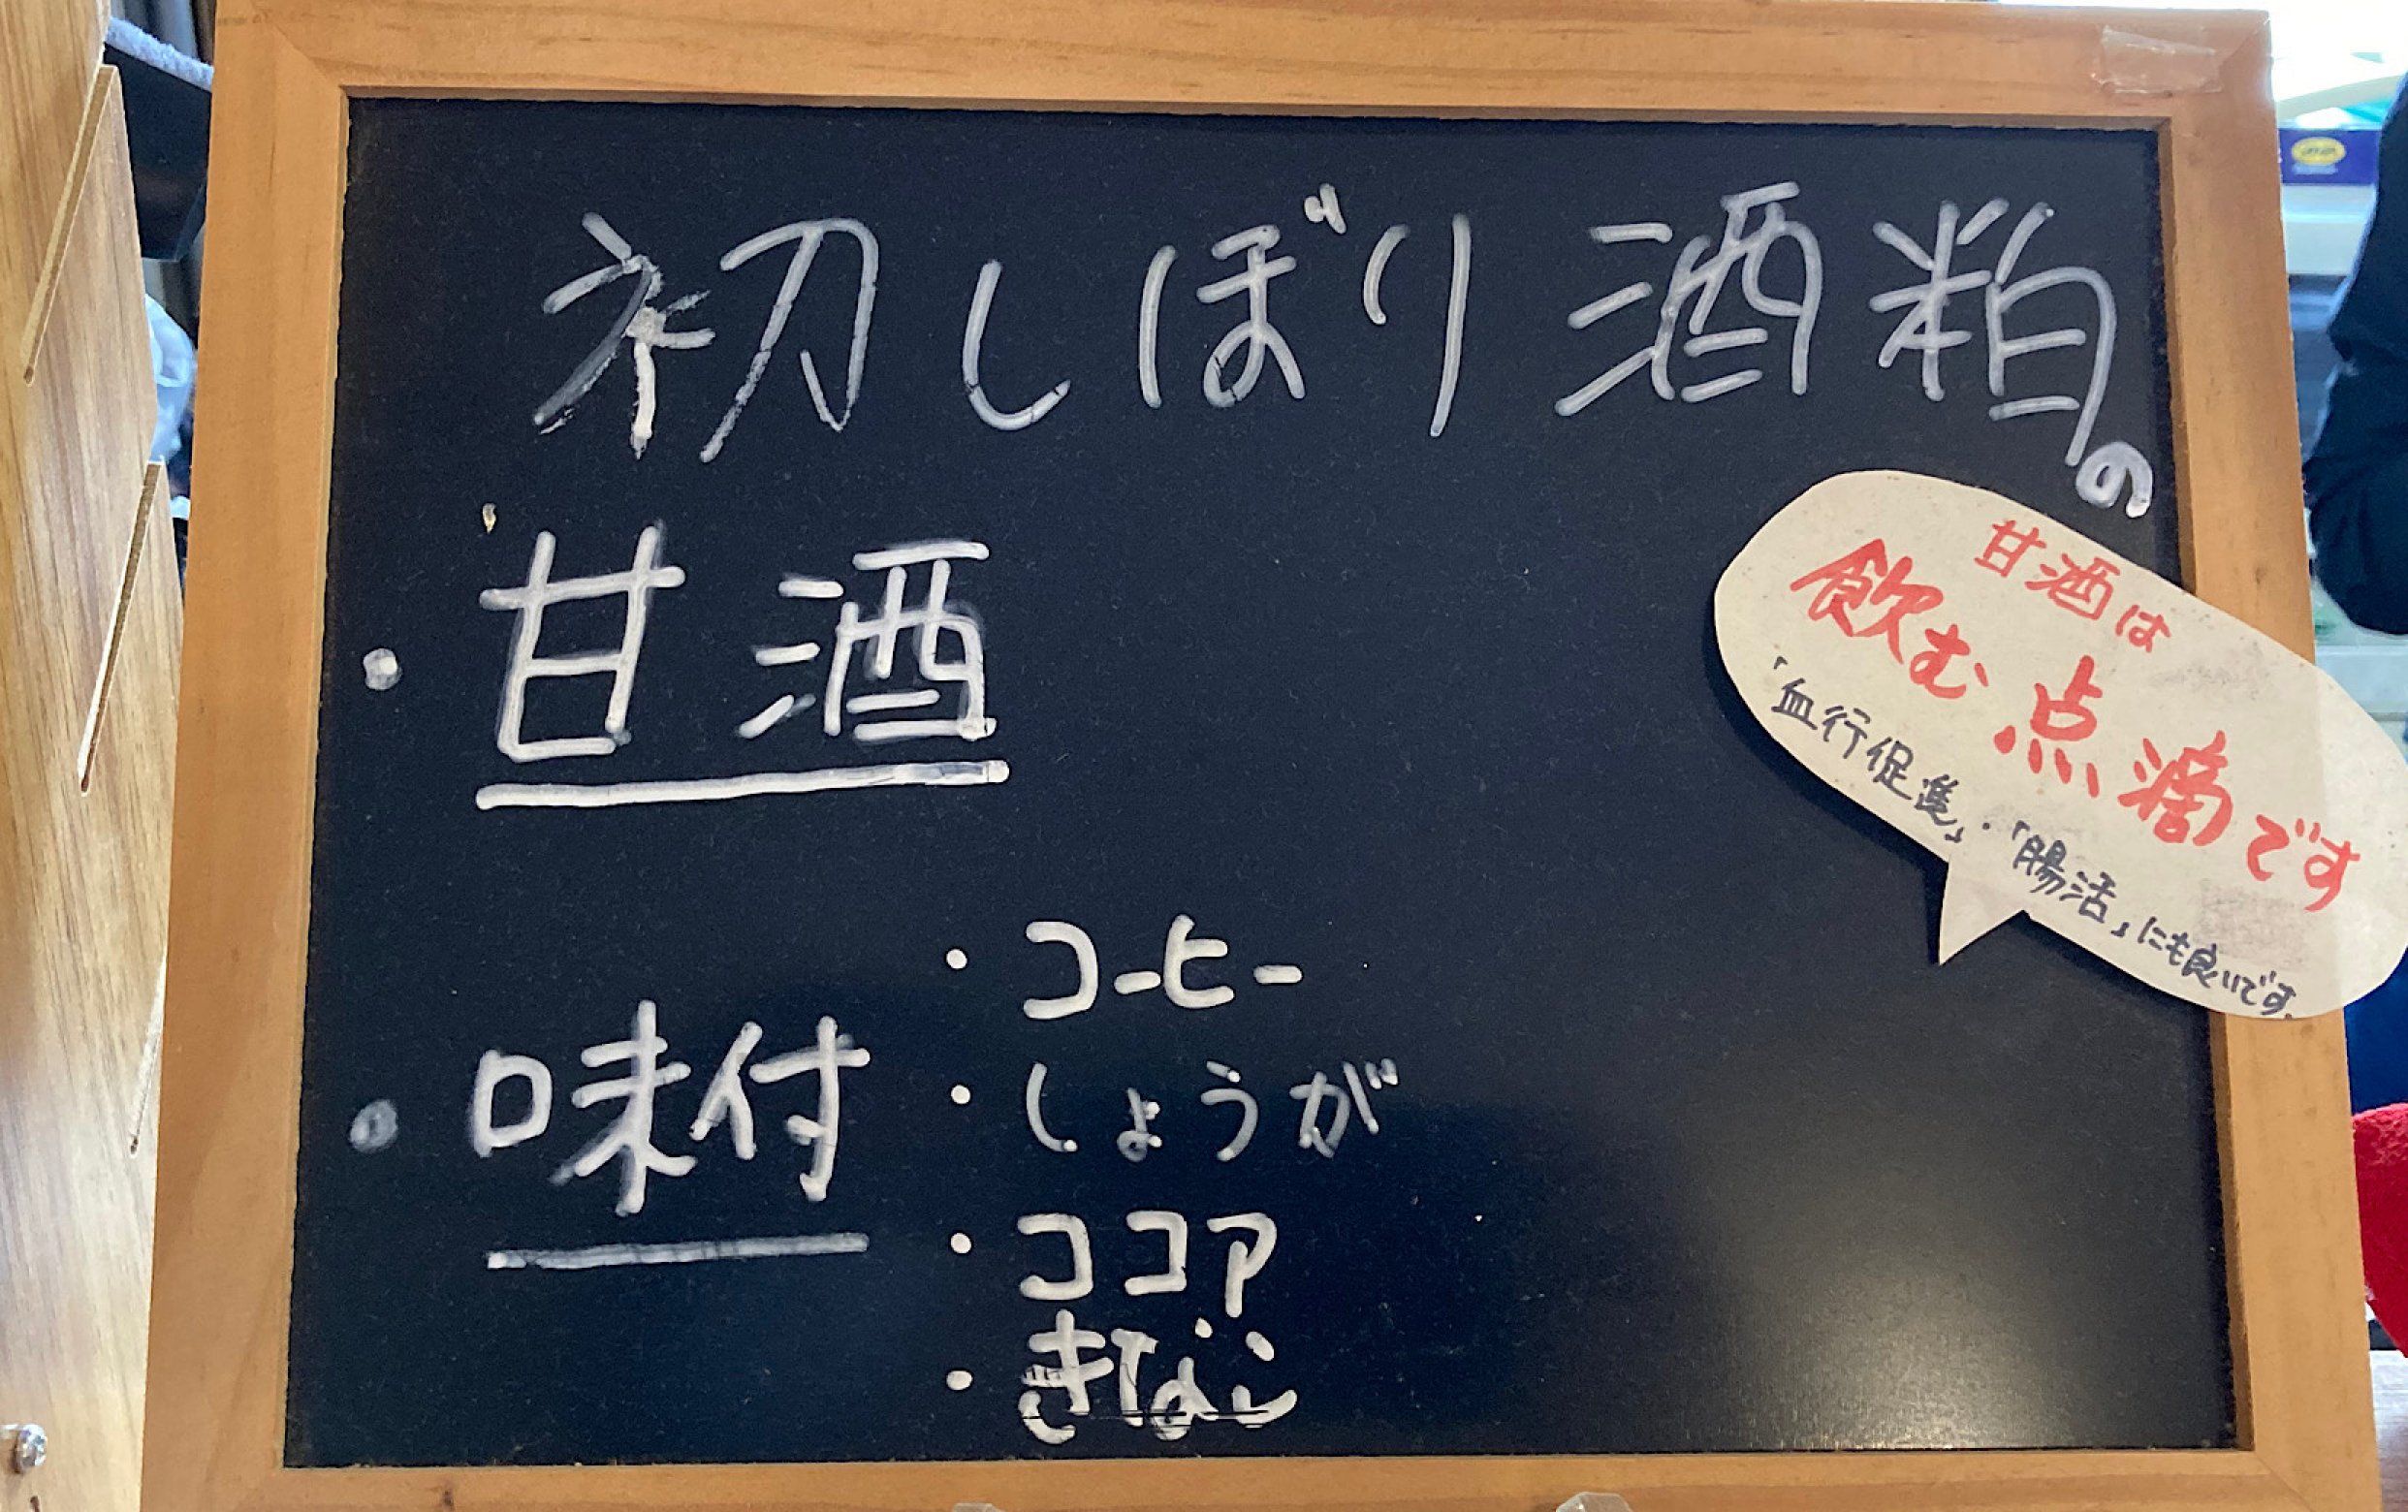 初しぼり酒粕の
・甘酒
甘酒は
飲む点滴です
「血行促進」・「腸活」にも良いです。
・味付
・コーヒー
・しょうが
・ココア